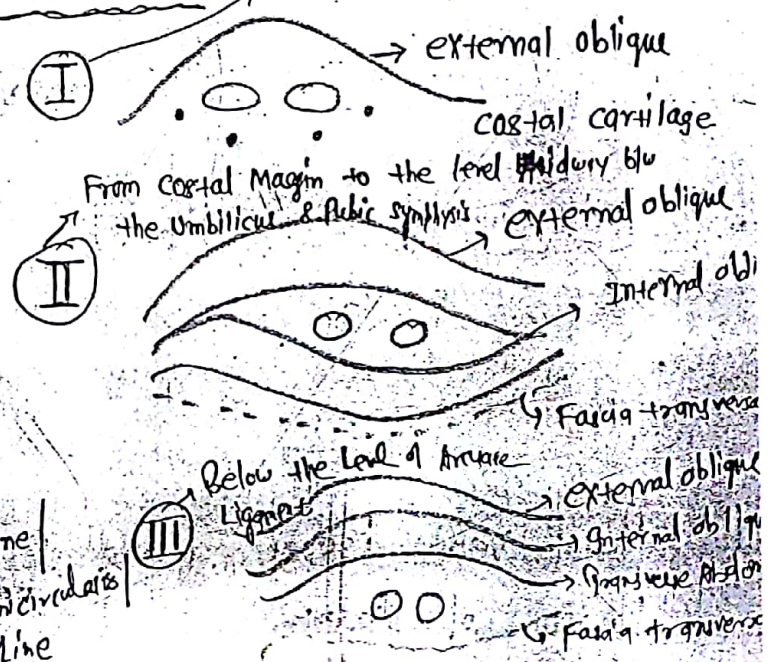 I
→ external oblique
Costal cartilage
From Costal Margin to the level Midway b/w
the Umbilicus & Pubic Symphysis
→ external oblique
II
Internal obli
Fascia transversa
Below the Level of Arcuate
Ligament
III
external oblique
Internal obliqu
Transverse Abdom
Fascia transvers
ne
nicircularis
Line